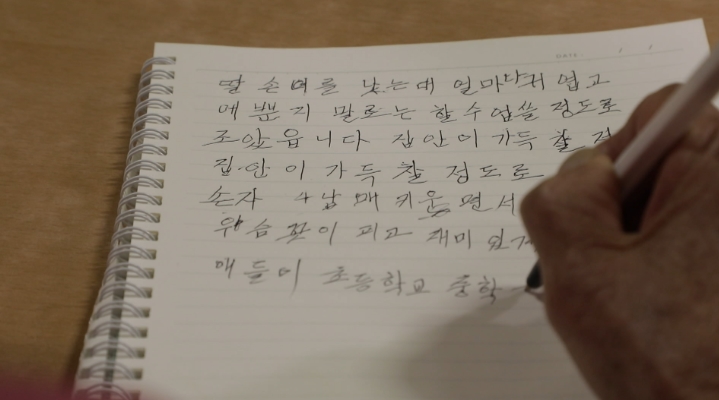 DATE. / /
딸 손녀를 낳는데 얼마나귀 엽고
예뿐지 말로는 할수업쓸 정도로
조았읍니다 집안이 가득찰
집안이 가득찰 정도로
손자 4남매 키우면서
웃음꽃이 피고 재미
애들이 초등학교 중학